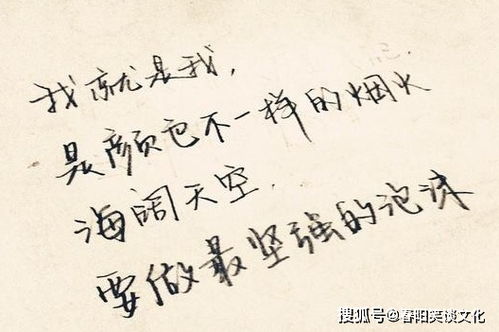 我就是我，
是颜色不一样的烟火
海阔天空.
要做最坚强的泡沫
搜狐号@春阳笑谈文化